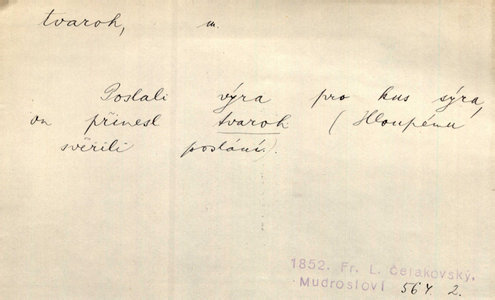 tvaroh, m.
Poslali výra pro kus sýra,
on přinesl tvaroh (Hloupému
svěřili poslání).
1852. Fr. L. Čelakovský,
Mudrosloví 564 2.